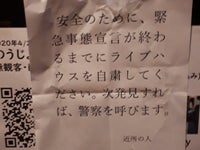 安全のために、緊
急事態宣言が終わ
るまでにライブハ
ウスを自粛してく
ださい。次発見すれ
ば、警察を呼びます。
近所の人
020年4/2
のうじょ
無観客・